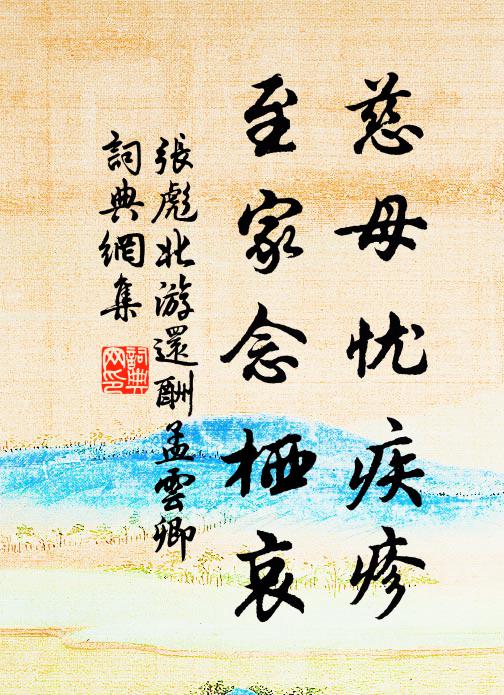 慈母忧疾疹
至家念栖哀
張彪北游還酬孟雲卿
詞典網集
詞典網印